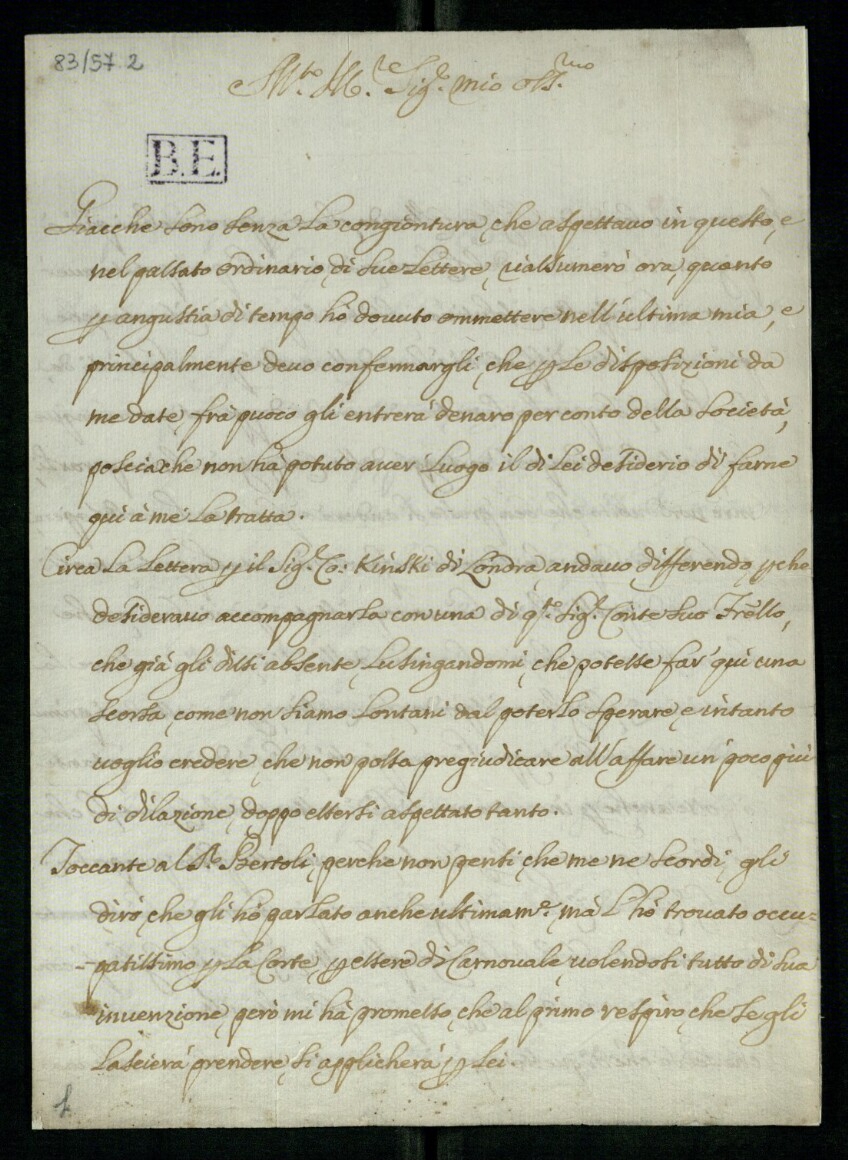 83/57 2
Mto. M.re Sigr. mio oss.mo
B.E.
Giacche sono senza la congiontura, che aspettavo in questo, e
nel passato ordinario di sue Lettere, riassumerò ora, quanto
p angustia di tempo hò dovuto ommettere nell'ultima mia, e
principalmente devo confermargli, che p le disposizioni da
me date, frà puoco gli entrerà denaro per conto della Società,
posciache non hà potuto aver Luogo il di Lei desiderio di farne
quì à me La tratta.
Circa La Lettera p il Sigr. Co: Kinski di Londra, andavo differendo, p che
desideravo accompagnarla con una di qto. Sigr. Conte suo Frello,
che già gli dissi absente, lusingandomi, che potesse far quì una
scorsa, come non siamo Lontani dal poterlo sperare, e intanto
voglio credere, che non possa pregiudicare all'affare un poco più
di dilazione, doppo essersi aspettato tanto.
Toccante al Sr. Bertoli, perche non pensi, che me ne scordi, gli
dirò, che gli hò parlato anche ultimamte., mà l'hò trovato occu=
=patissimo p La Corte, p essere di Carnovale, volendosi tutto di sua
invenzione, però mi hà promesso, che al primo respiro, che se gli
Lascierà prendere, si applicherà p Lei.